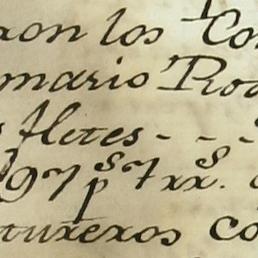 xon los Co
mario Rod
s fletes - - -
197 p^s 7 xx^s.
tuxexos co